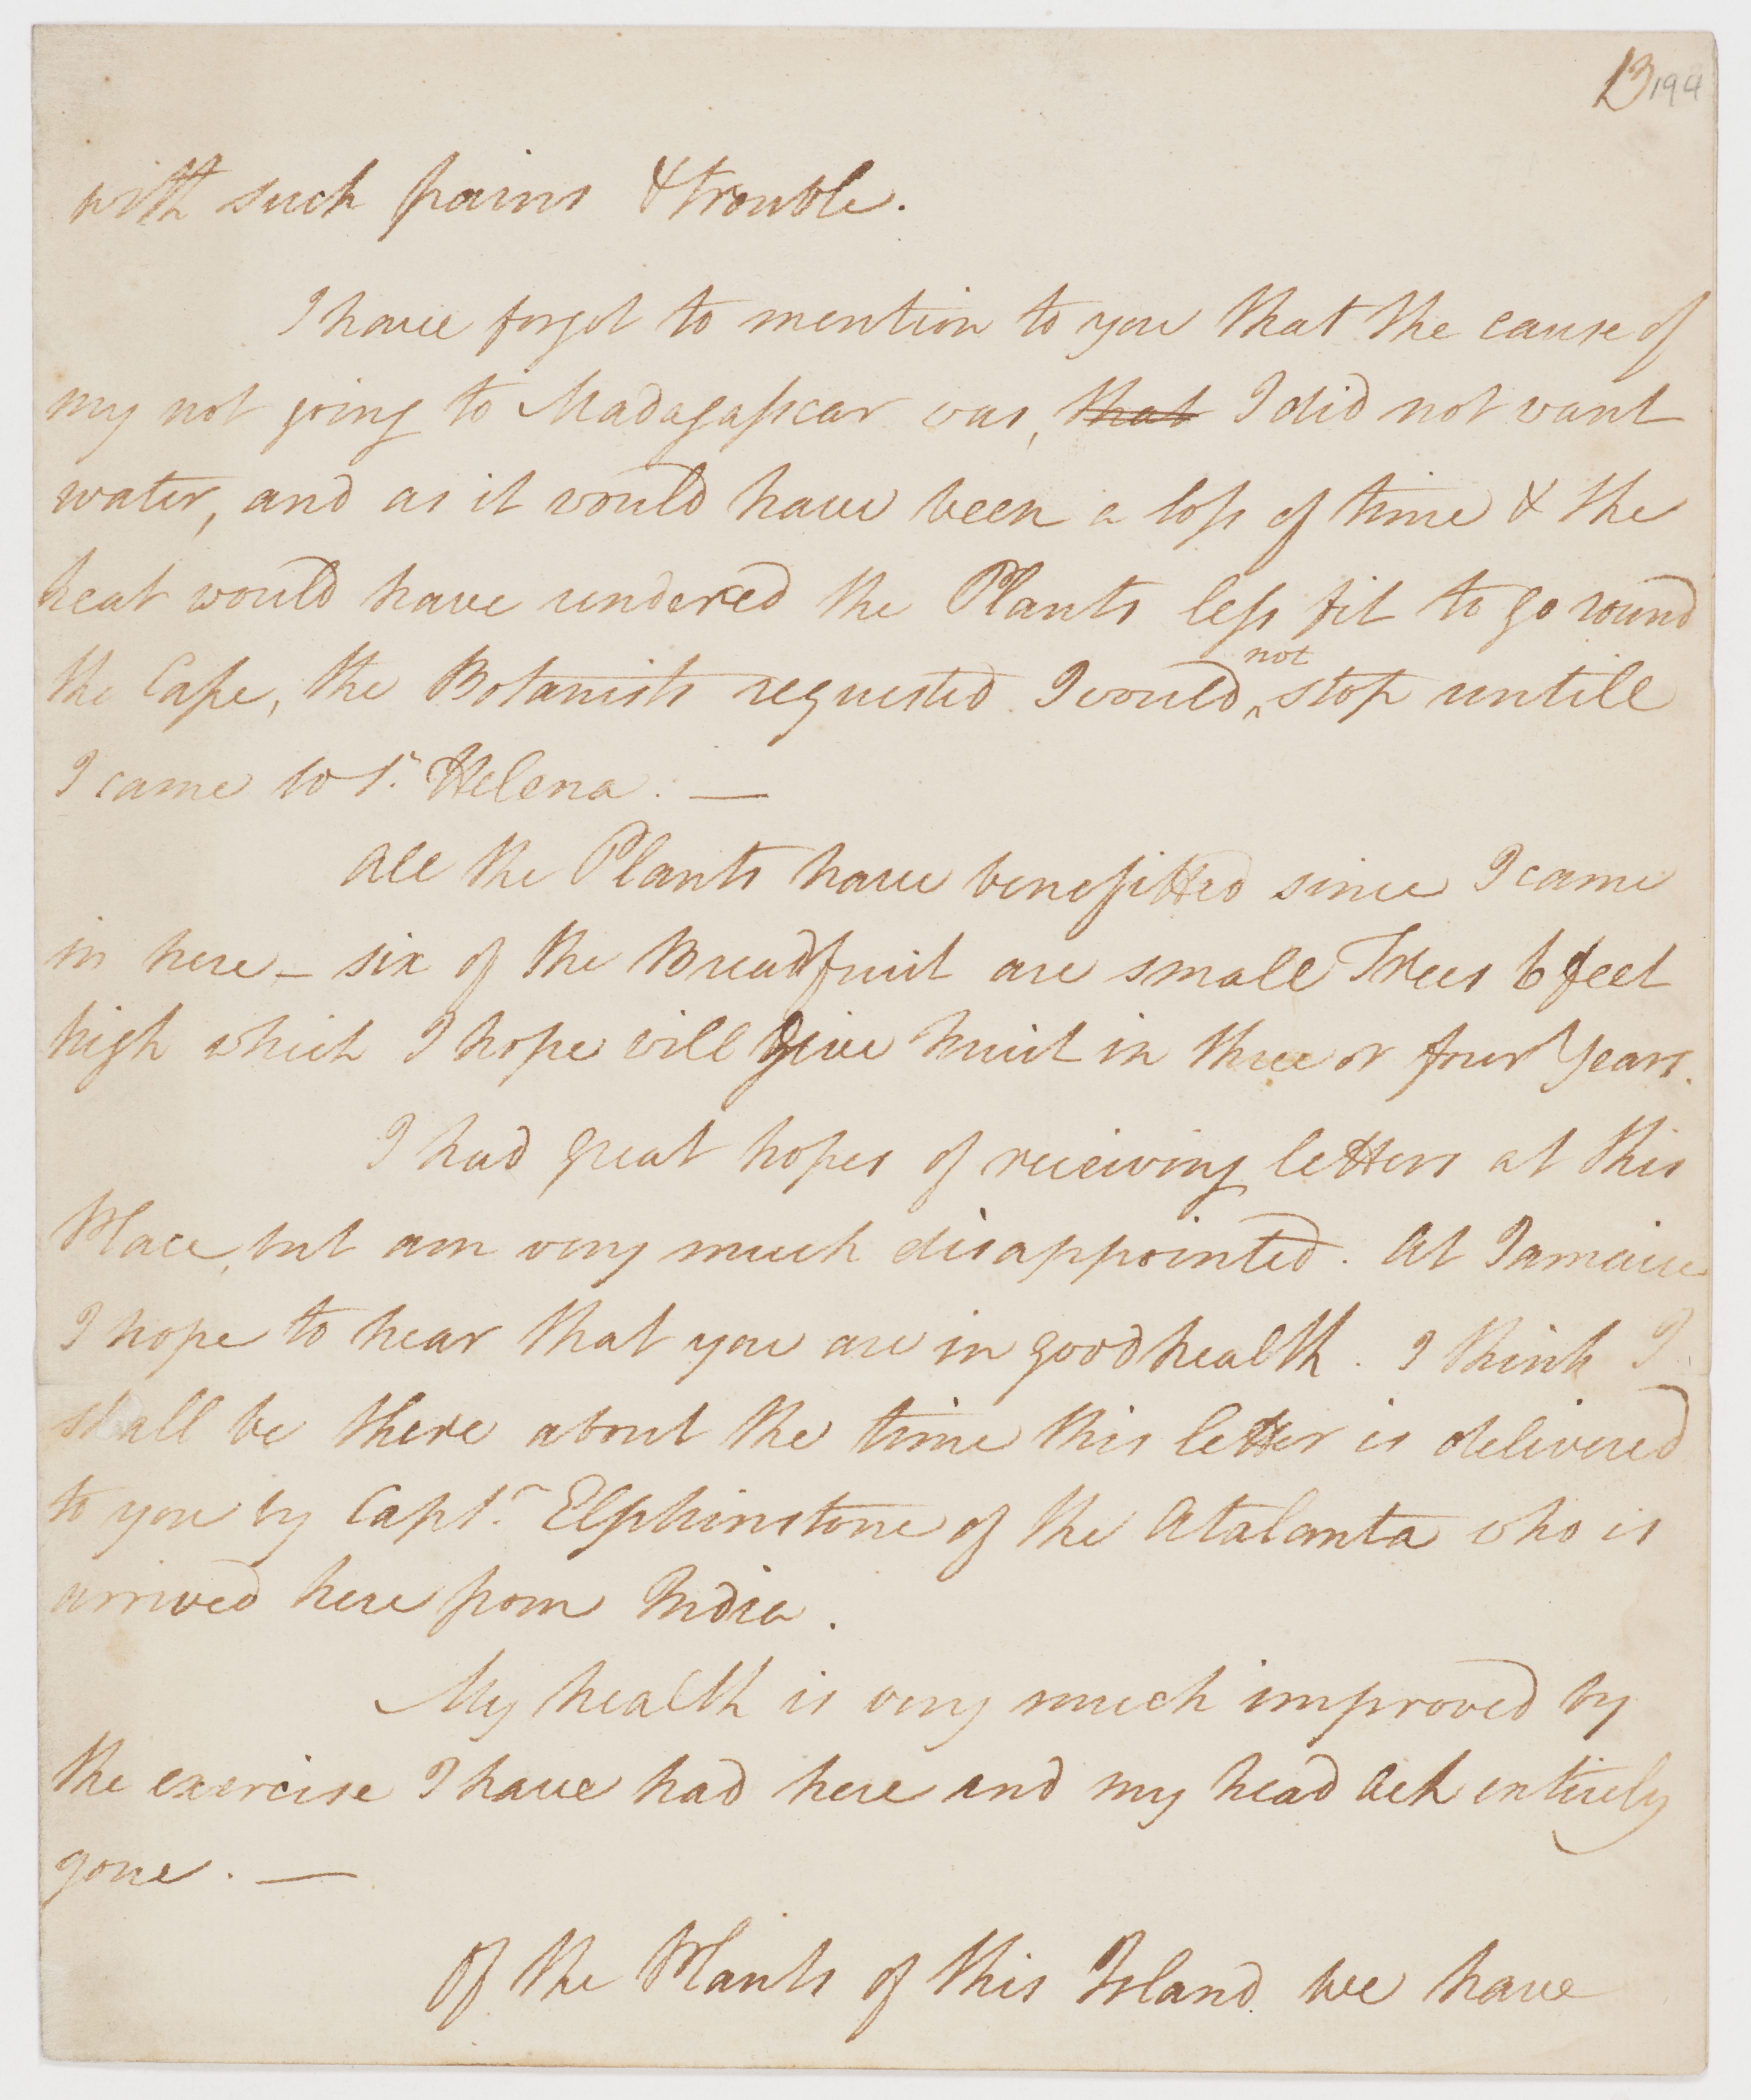 13 194
with such pains & trouble.
I have forgot to mention to you that the cause of
my not going to Madagasscar was, that I did not want
water, and as it would have been a loss of time & the
heat would have rendered the Plants less fit to go round
the Cape, the Botanists requested I would not stop untill
I came to St. Helena. —
All the Plants have benefitted since I came
in here – six of the Breadfruit are small Trees 6 feet
high which I hope will give fruit in three or four Years.
I had great hopes of receiving letters at this
Place, but am very much disappointed. At Jamaica
I hope to hear that you are in good health. I think I
shall be there about the time this letter is delivered
to you by Capt. Elphinstone of the Atalanta who is
arrived here from India.
My health is very much improved by
the exercise I have had here and my head ach entirely
gone. —
Of the Plants of this Island we have